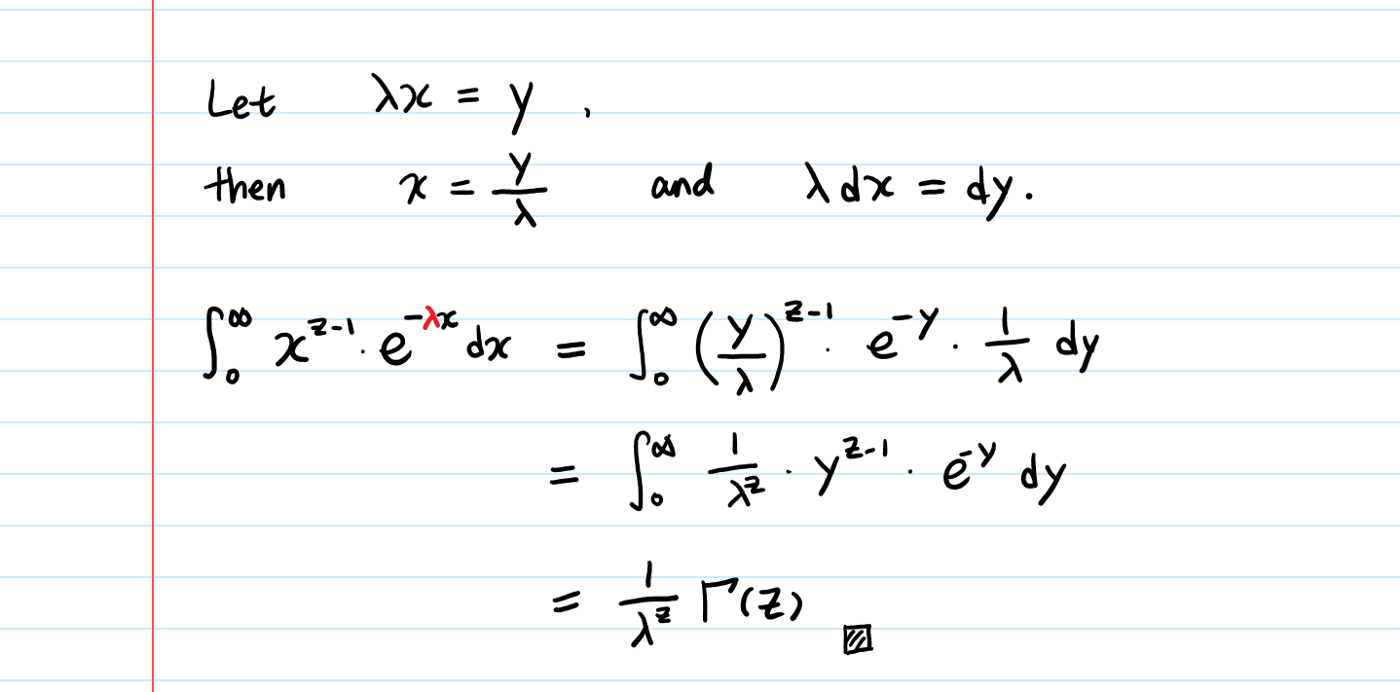 Let λx = y ,
then x = y/λ and λ dx = dy.
∫₀^∞ x^(z-1) · e^(-λx) dx = ∫₀^∞ (y/λ)^(z-1) · e^(-y) · 1/λ dy
= ∫₀^∞ 1/λ^z · y^(z-1) · e^(-y) dy
= 1/λ^z Γ(z) ▨